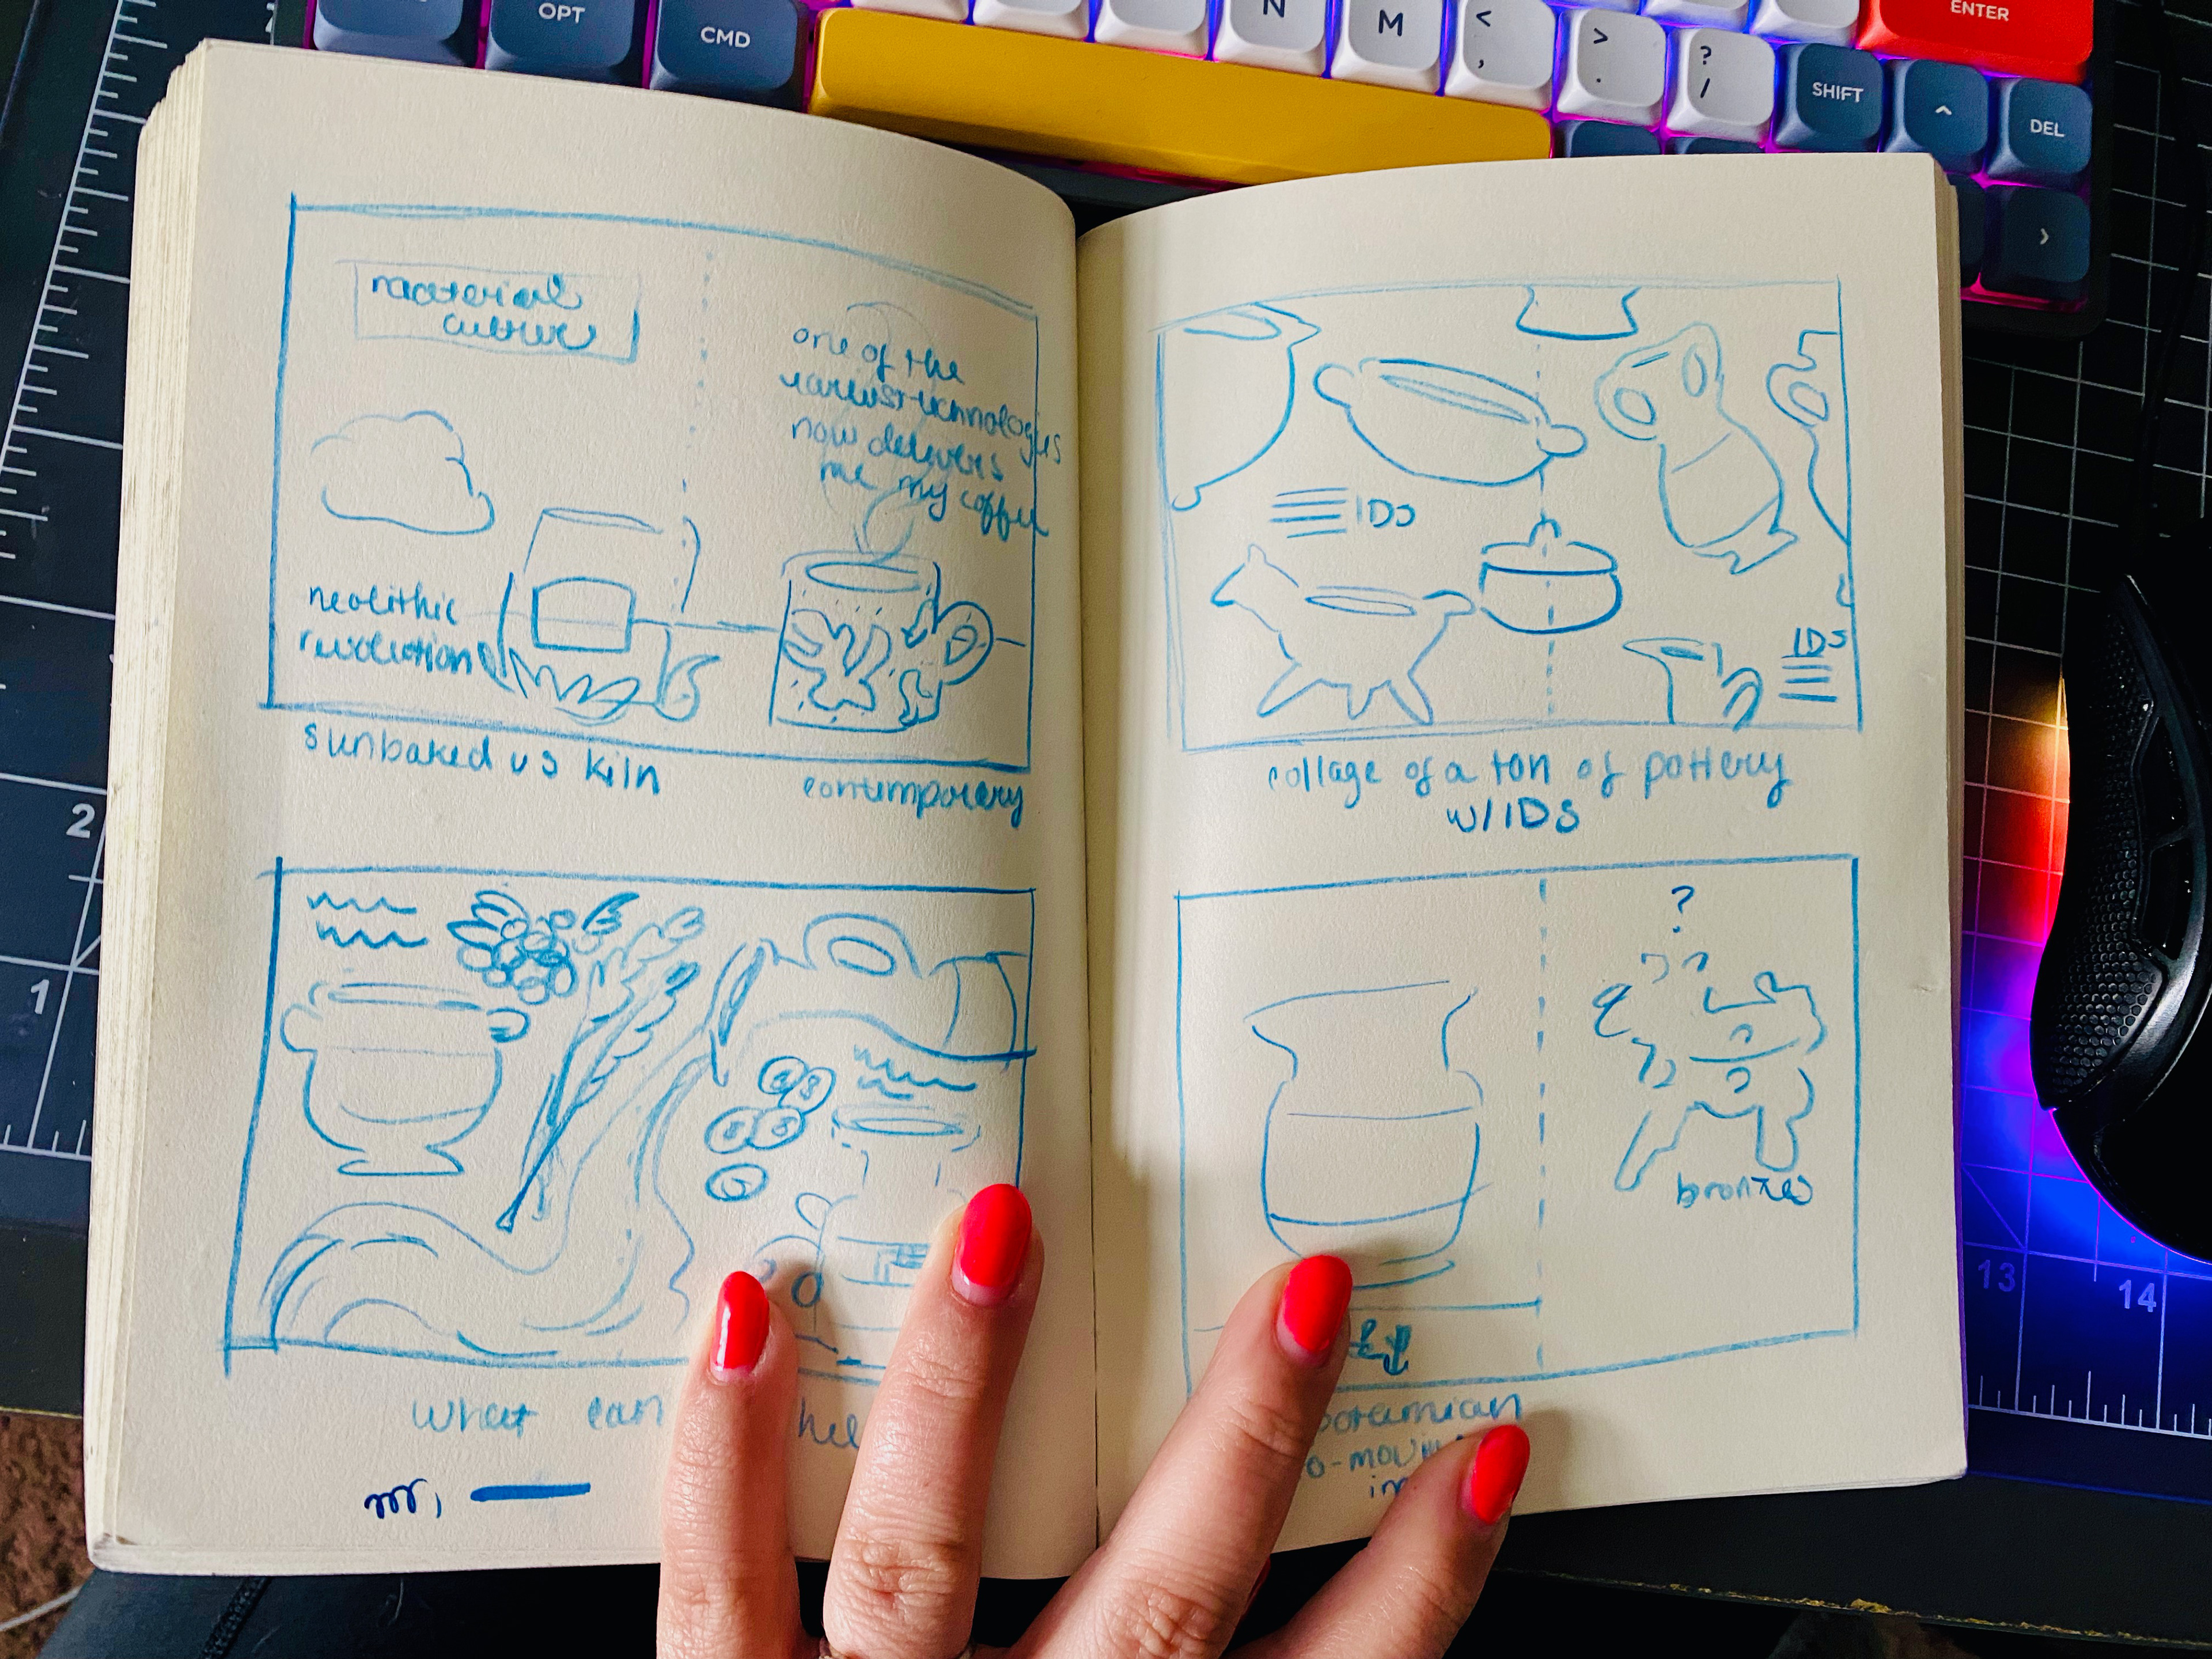 OPT
CMD
N
M
<
,
>
.
?
/
ENTER
SHIFT
^
DEL
>
material
culture
one of the
earliest technologies
now delivers
me my coffee
neolithic
revolution
sunbaked vs kiln
contemporary
what can
IDS
IDS
collage of a ton of pottery
w/IDS
?
bronzes
2
1
13
14